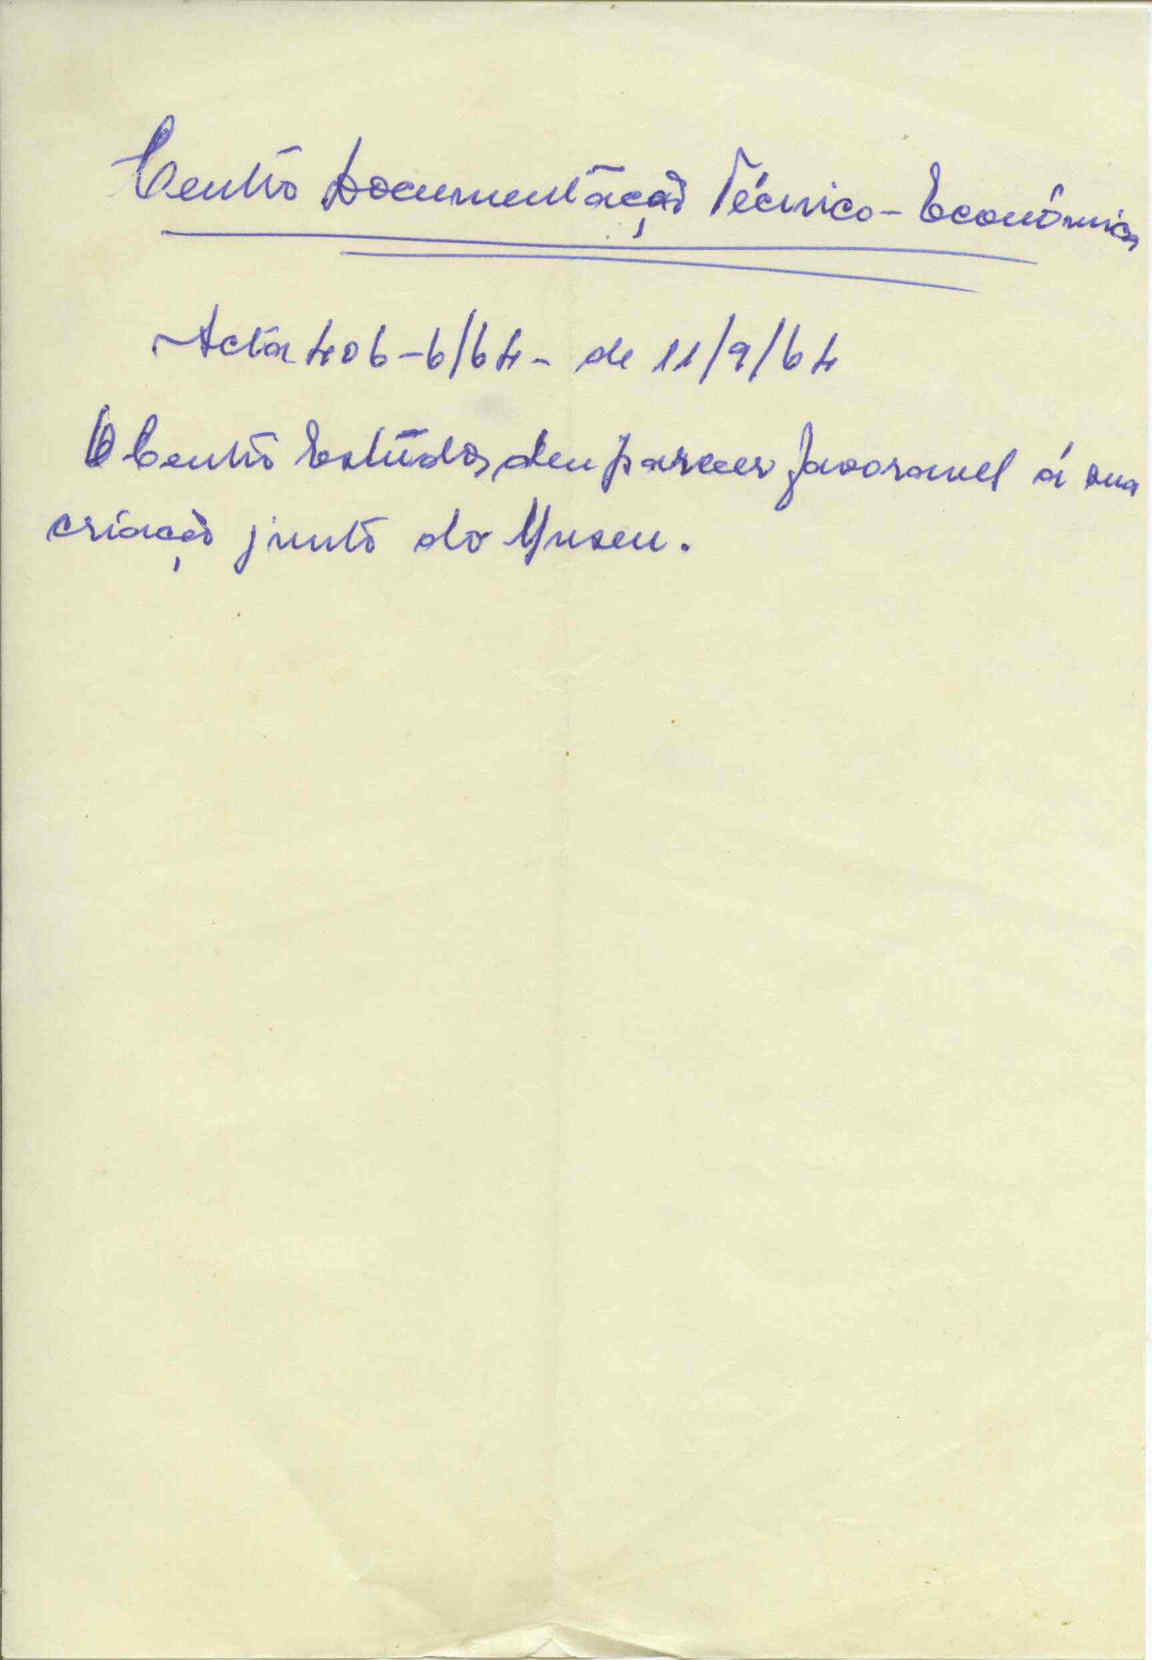 Centro Documentação Técnico-Económica
Acta 406-6/64- de 11/9/64
O Centro Estudos deu parecer favoravel á sua
criação junto do Museu.